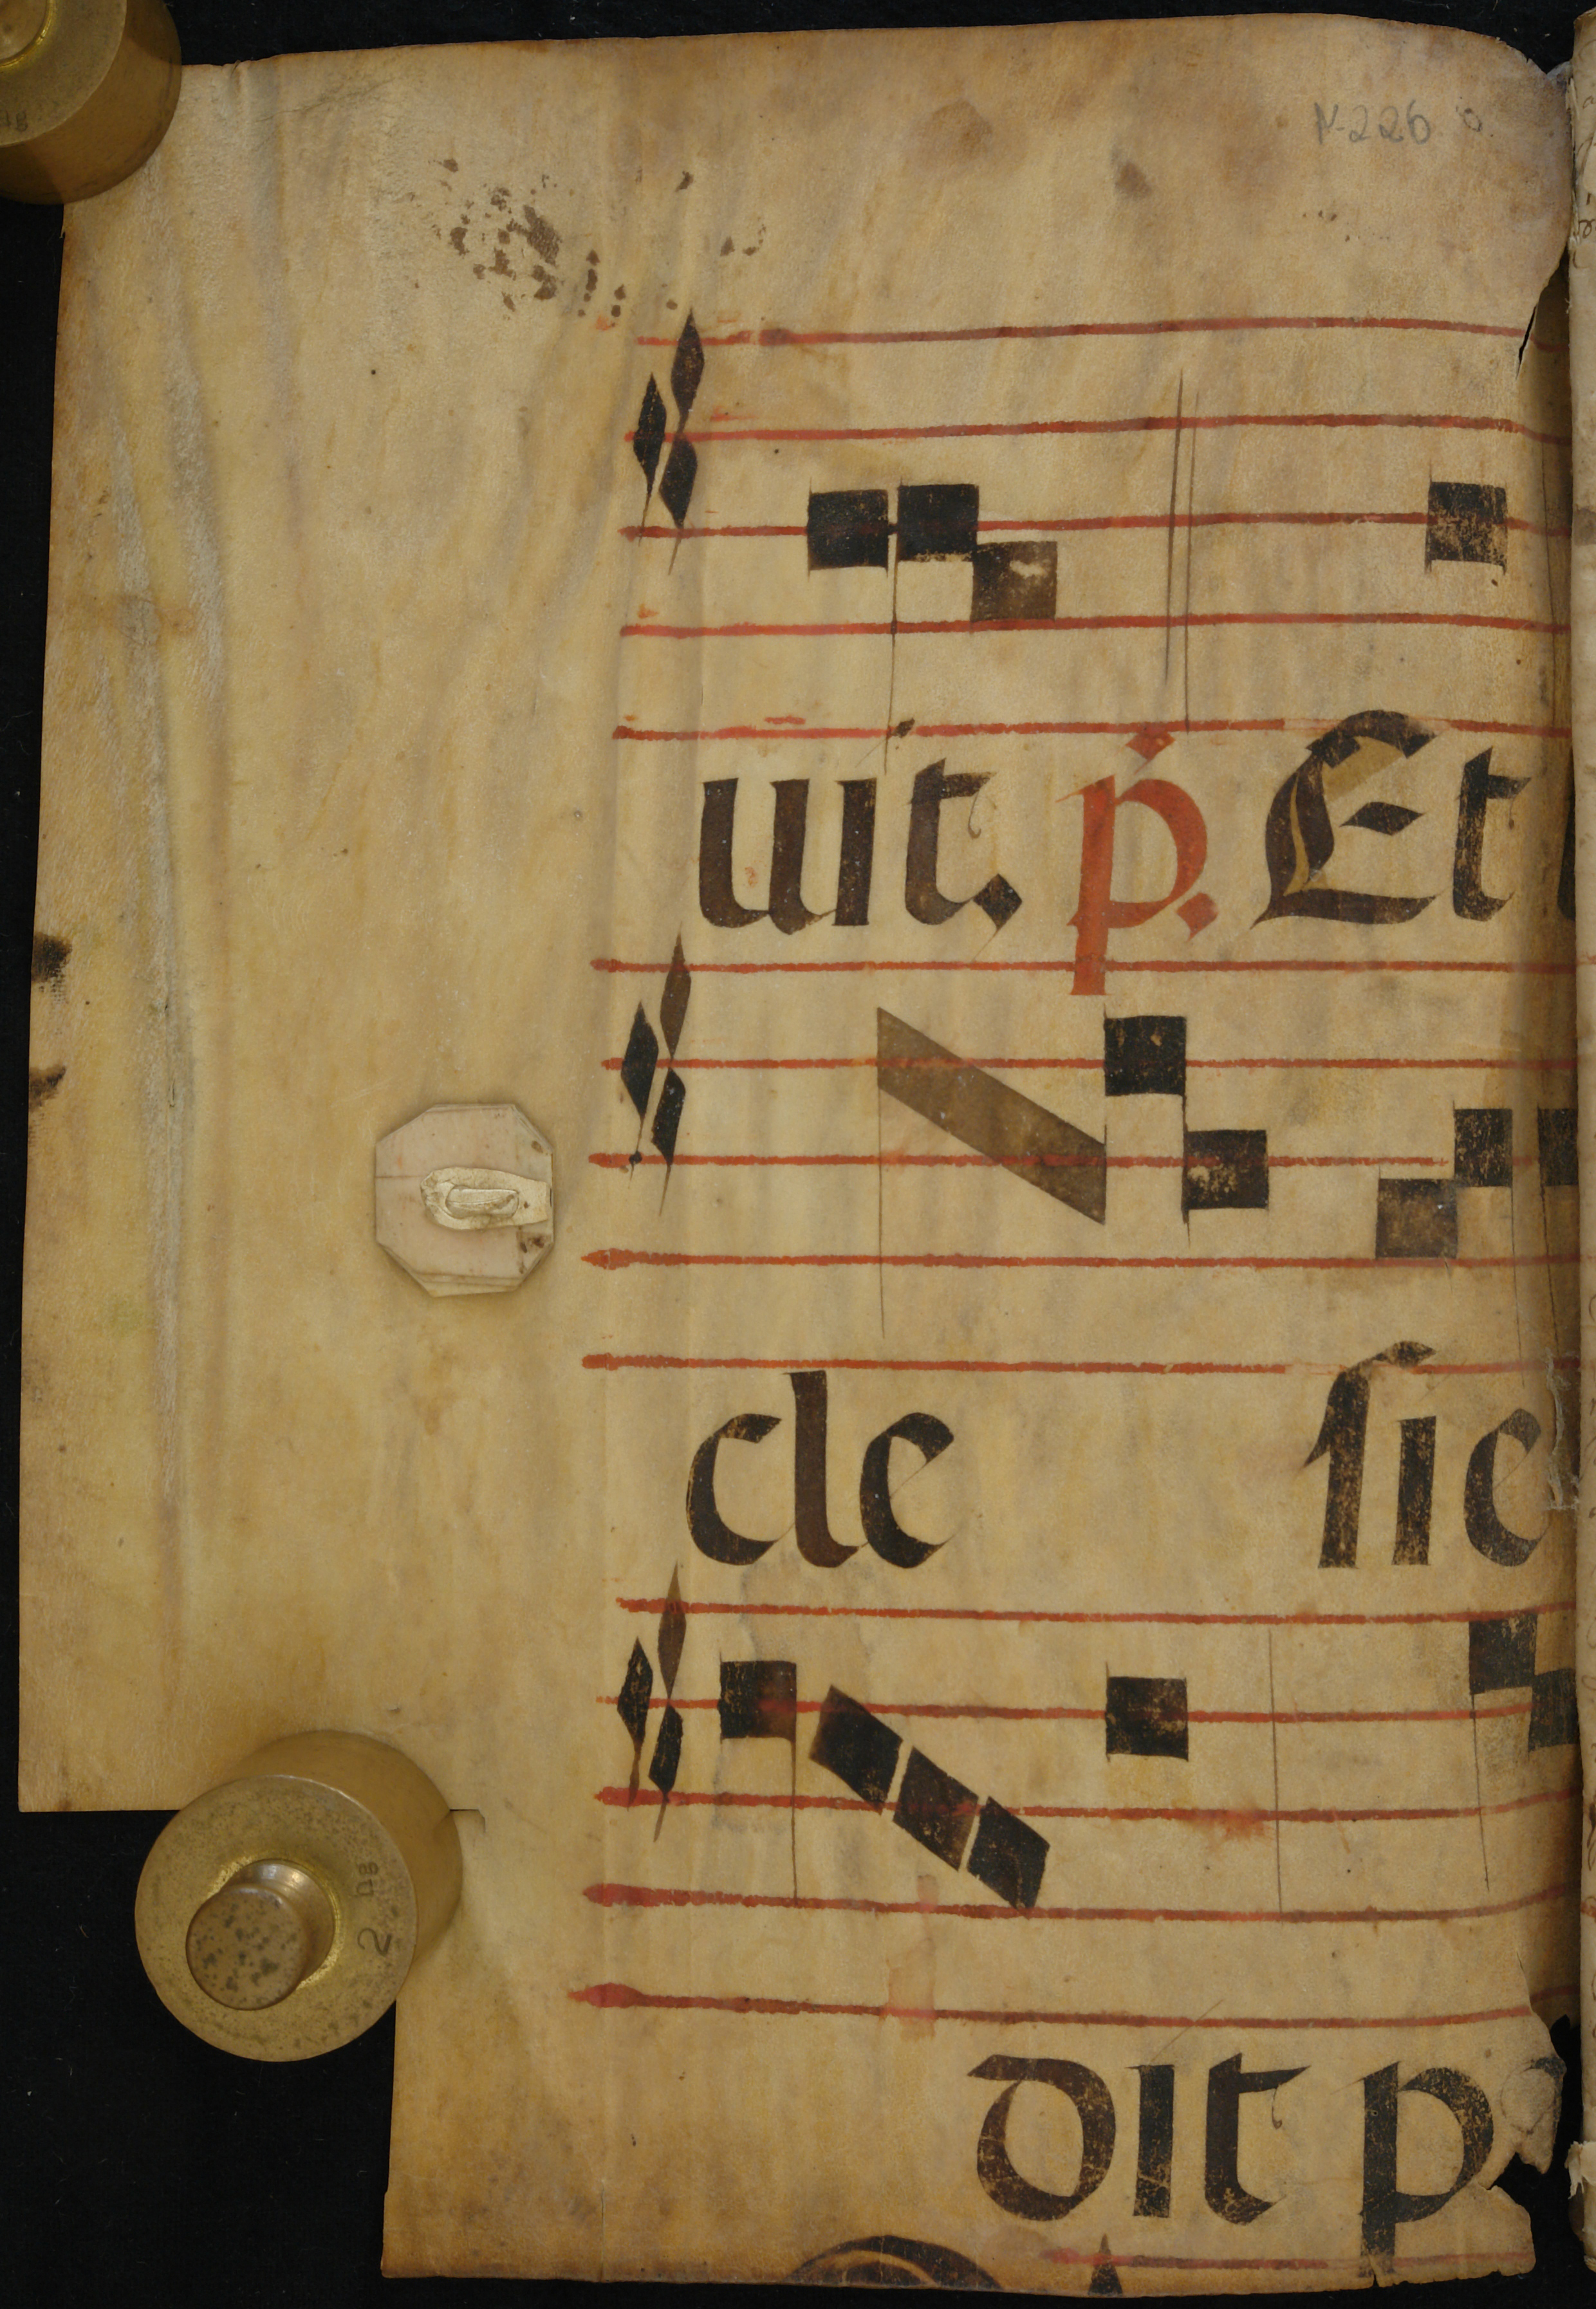 N-226
uit. p. Et
cle sie
dit p
2 HG